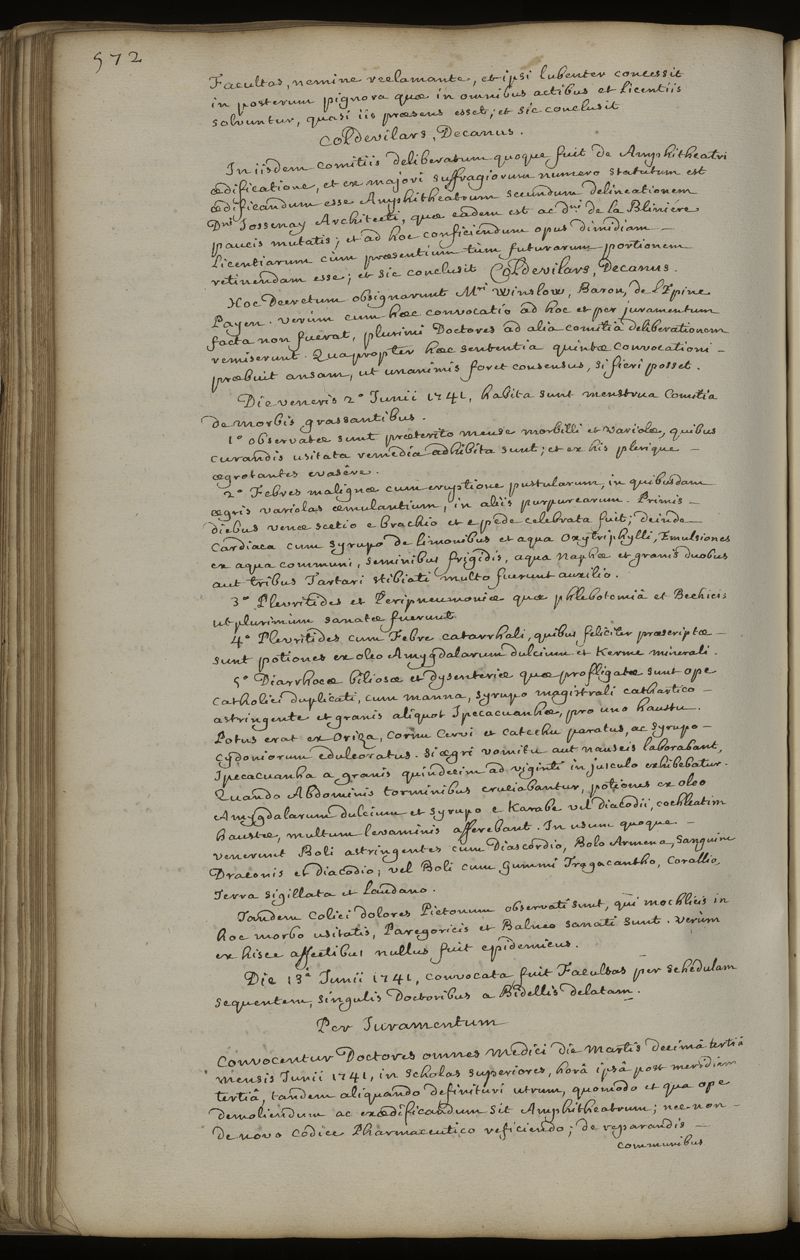 572
Facultas, nemine reclamante, et ipsi lubenter concessit
in posterum pignora quæ in omnibus actibus et licentiis
solvuntur, quasi iis præsens esset; et sic conclusit
Coldevilars, Decanus.
In iisdem comitiis deliberatum quoque fuit de Amphitheatri
ædificatione, et ex majori suffragiorum numero statutum est
ædificandum esse Amphitheatrum secundum delineationem
Dni Jossenay Architecti, quæ eadem est ac dni de la Bliniere
paucis mutatis; et ad hoc conficiendum opus dimidiam —
Licentiarum cùm præsentium tùm futurarum portionem
retinendam esse; et sic conclusit Coldevilars, Decanus.
Hoc Decretum obsignarunt Mri Winslow, Baron, de l'Epine
Payen. verùm cum hæc convocatio ad hoc et per juramentum
facta non fuerat, plurimi Doctores ad alia comitia deliberationem
remiserunt. Quapropter hæc sententia quintæ convocationi —
præbuit ansam, ut unanimis foret consensus, si fieri posset.
Die veneris 2ª Junii 1741, habita sunt menstrua Comitia
de morbis grassantibus.
1º observatæ sunt præterito mense morbilli et variolæ, quibus
curandis usitata remedia adhibita sunt; et ex his plerique —
ægrotantes evasêre.
2º Febres malignæ cum eruptione pustularum, in quibusdam
ægris variolas æmulantium, in aliis purpurearum. Primis —
diebus venæ sectio e brachio et e pede celebrata fuit; deinde
Cardiaca cum syrupo de limonibus et aqua oxytriphylli, Emulsiones
ex aqua communi, seminibus frigidis, aqua naphæ et granis duobus
aut tribus Tartari stibiati multo fuerunt auxilio.
3º Pleuritides et Peripneumoniæ quæ phlebotomiâ et Bechicis
ut plurimum sanatæ fuerunt.
4º Pleuritides cum Febre catarrhali, quibus feliciter præscriptæ —
sunt potiones ex oleo Amygdalarum dulcium et Kerme minerali.
5º Diarrhoeæ biliosæ et dysenteriæ quæ profligatæ sunt ope
Catholici duplicati, cum manna, syrupo magistrali cathartico —
astringente et granis aliquot Ipecacuanhæ, pro uno haustu.
Potus erat ex Oriza, Cornu Cervi et Catechu paratus, ac syrupo —
Cydoniorum edulcoratus. Si ægri vomitu aut nauseis laborabant,
Ipecacuanha a granis quindecim ad viginti in jusculo exhibebatur.
Quando Abdominis torminibus cruciabantur, potiones ex oleo
Amygdalarum dulcium et syrupo e Karabe vel diacodii, cochleatim
haustæ, multum levaminis afferebant. In usum quoque —
venerunt Boli astringentes cum Diascordio, Bolo Armena, Sanguine
Draconis et diacodio; vel Boli cum Gummi Tragacantho, Corallio,
Terra sigillata et Laudano.
Tandem Colici dolores Pictonum observati sunt, qui mochlicis in
hoc morbo usitatis, Paregoricis et Balneo sanati sunt. verùm
ex hisce affectibus nullus fuit epidemicus.
Die 13ª Junii 1741, convocata fuit Facultas per schedulam
sequentem, singulis Doctoribus a Bidellis delatam.
Per Juramentum
Convocentur Doctores omnes Medici die Martis decimâ tertiâ
mensis Junii 1741, in Scholas superiores, horâ ipsâ post meridiem
tertiâ, tandem aliquando definituri utrum, quomodo et qua ope
demoliendum ac exædificandum sit Amphitheatrum; nec-non —
de novo Codice Pharmaceutico reficiendo; de reparandis —
communibus